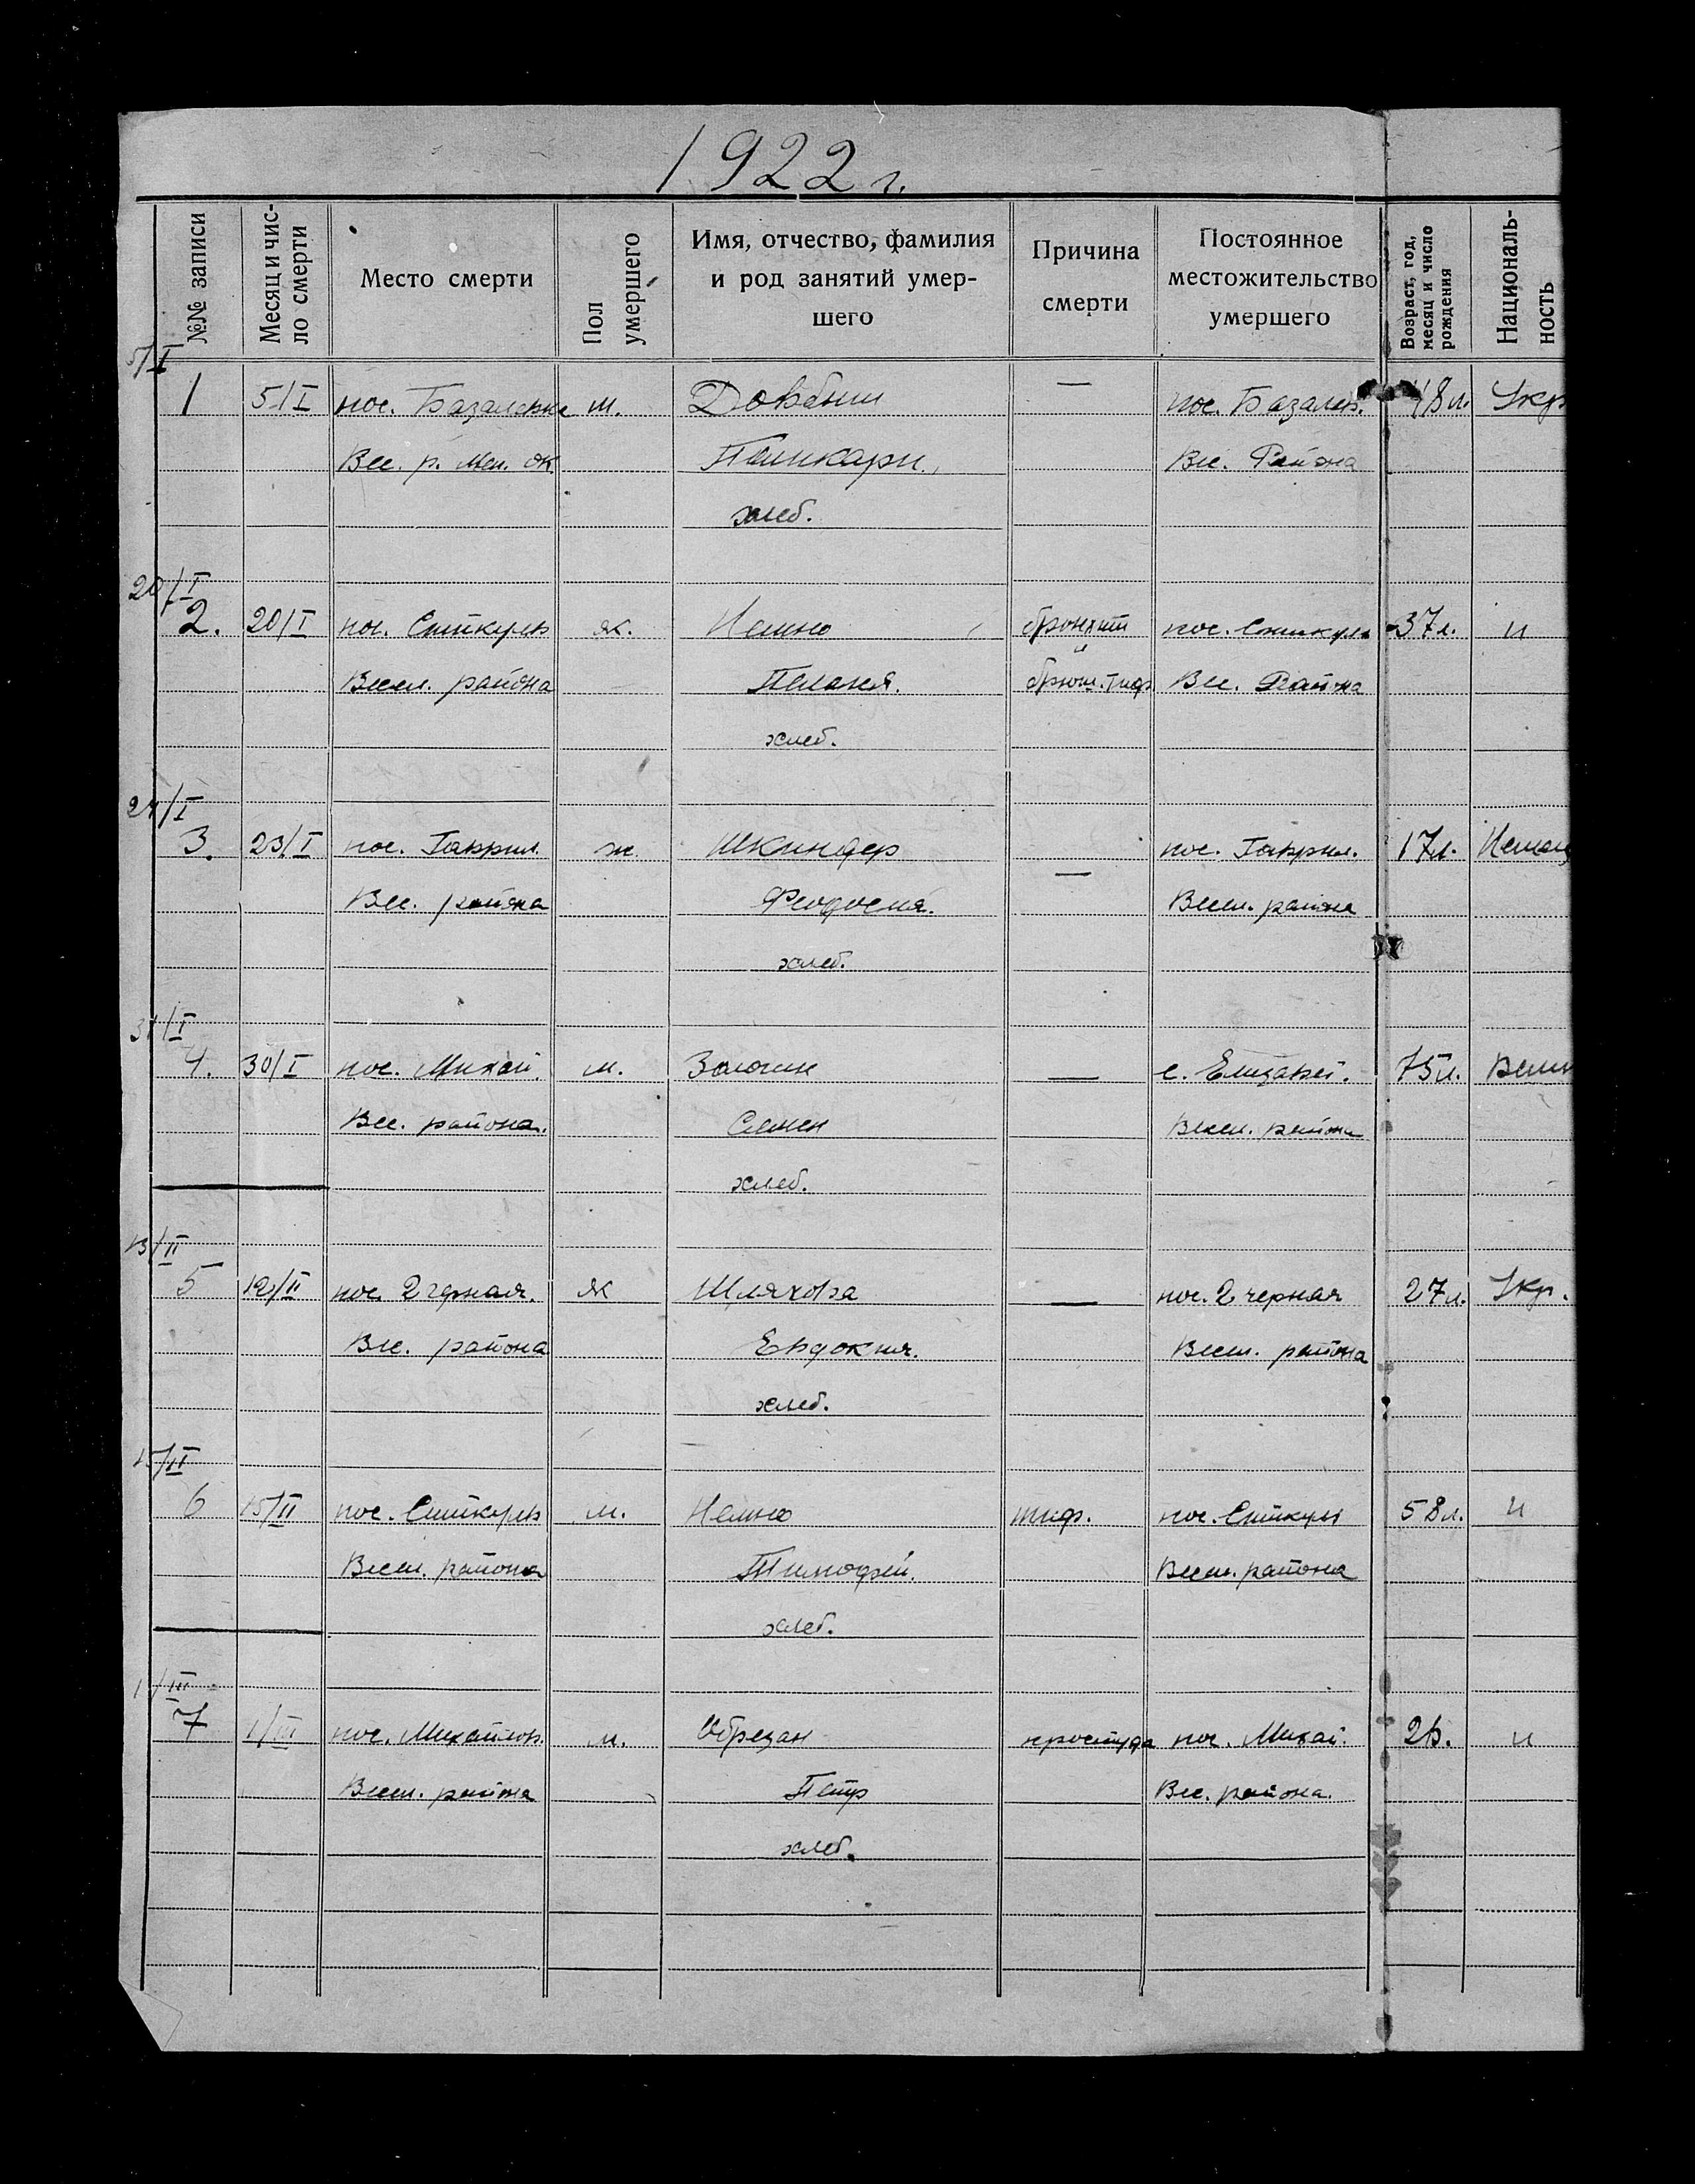 1922 г.
№№ записи
Месяц и чис-
ло смерти
Место смерти
Пол
умершего
Имя, отчество, фамилия
и род занятий умер-
шего
Причина
смерти
Постоянное
местожительство
умершего
Возраст, год,
месяц и число
рождения
Националь-
ность
5/I
1 5/I пос. м. — пос. Базалев. 48 л. Укр
Вес. р. Мел. ок. Вес. Района
хлеб.
20/I
2. 20/I пос. ж. бронхит пос. 37 л. и
и
Весел. района Пелагея. брюш. тиф Вес. Района
хлеб.
24/I
3. 23/I пос. Гаврил. ж. Шкиндер — пос. Гаврил. 17 л.
Вес. района Феодосия. Весел. района
хлеб.
31/I
4. 30/I пос. Михай. м. — с. Елизавет. 75 л.
Вес. района. Семен Весел. района
хлеб.
13/II
5 12/II пос. 2 черная. ж Шляхова — пос. 2 черная 27 л. Укр.
Вес. района Евдокия. Весел. района
хлеб.
15/II
6 15/II пос. м. тиф. пос. 58 л. и
Весел. района Тимофей. Весел. района
хлеб.
1/III
7 1/III пос. Михайлов. м. Обрезан простуда пос. Михай. и
Весел. района Петр Вес. района.
хлеб.